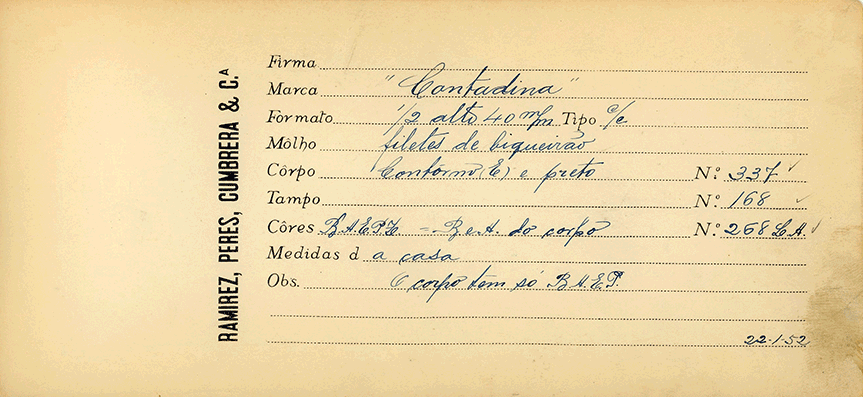 RAMIREZ, PERES, CUMBRERA & C.ᴬ
Firma
Marca "Contadina"
Formato 1/2 alto 40 m/m Tipo c/c
Môlho filetes de biqueirão
Côrpo Contorno (E) e preto N.º 337
Tampo N.º 168
Côres B.A.E.P.Z = B e A. do corpo N.º 268 L A
Medidas d a casa
Obs. O corpo tem só B.A.E.P.
22-1-52